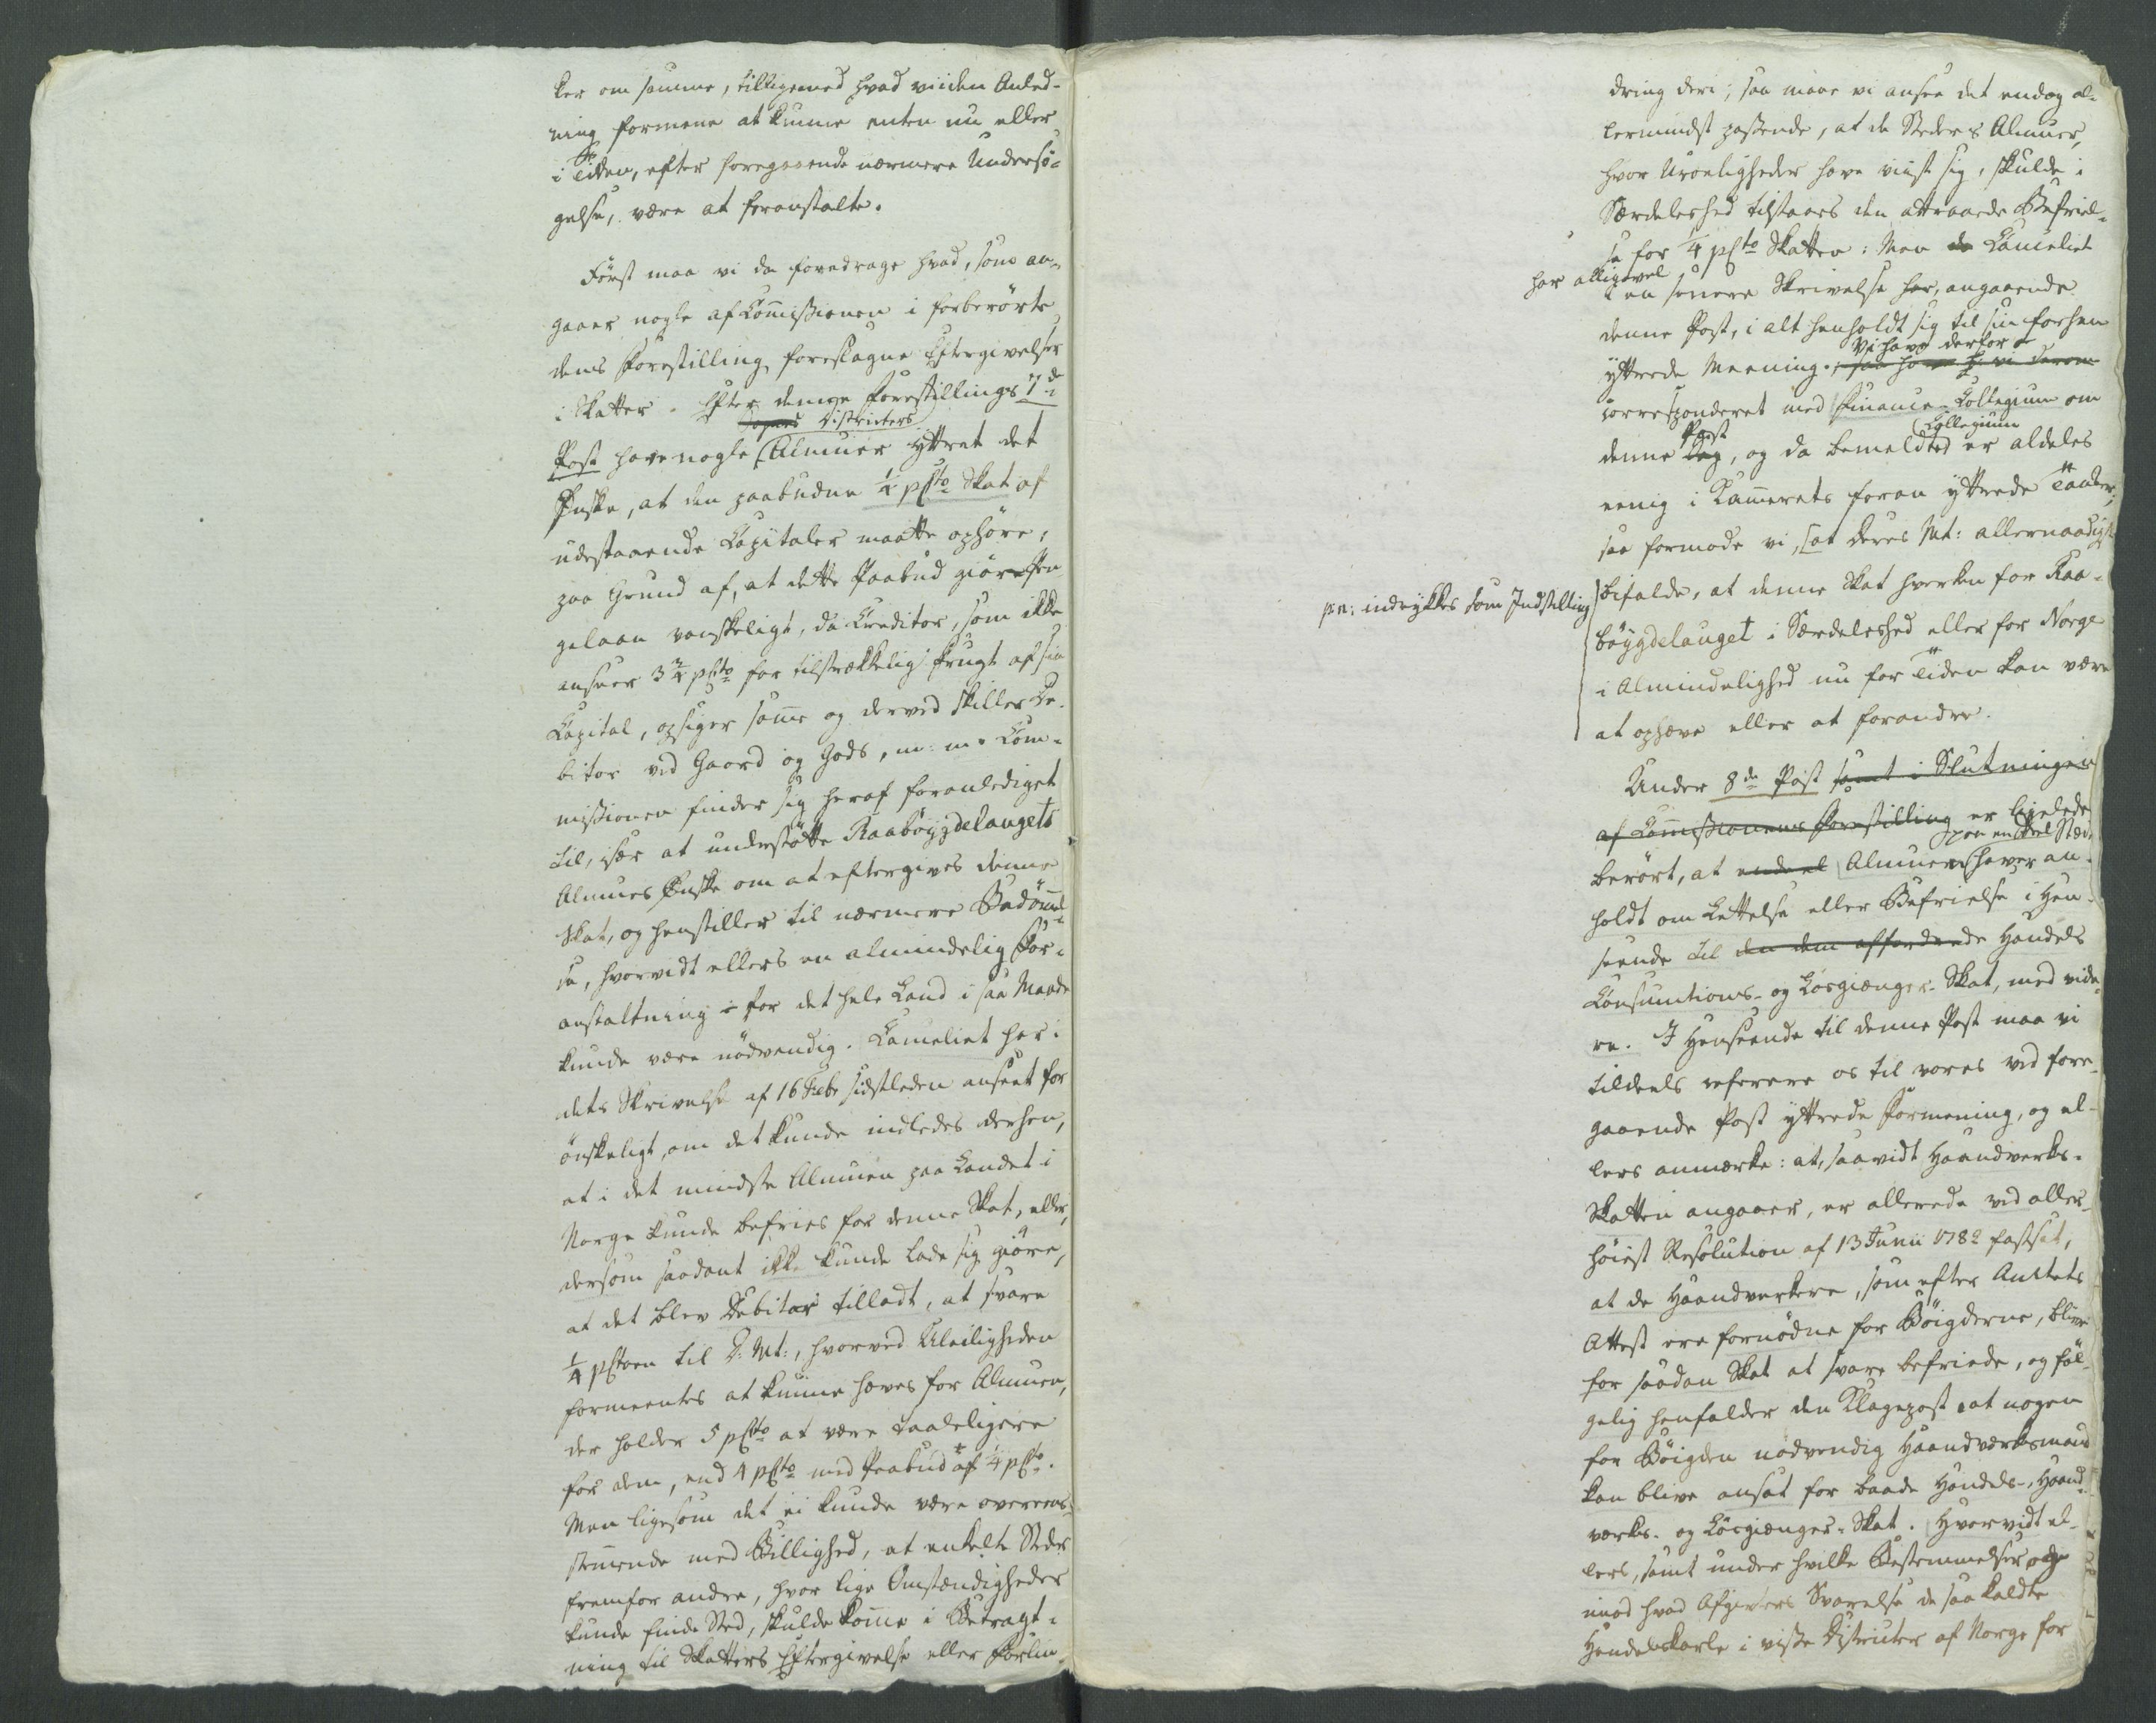 ker om samme, tilligemed hvad vi i den Anled-
ning formene at kunne enten nu eller
i Tiden, efter foregaaende nærmere Undersö-
gelse, være at foranstalte.
Först maa vi da foredrage hvad, som an-
gaaer nogle af Com̅issionen i forberörte
dens Forestilling foreslagne Eftergivelser
i Skatter. Efter denne Forestillings 7de
Districters
Post have nogle Almuer yttret det
Ønske, at den paabudne ¼ pCto Skat af
udestaaende Capitaler maatte ophöre,
paa Grund af, at dette Paabud giör Pen-
gelaan vanskeligt, da Creditor, som ikke
anseer 3¾ pCto for tilstrækkelig Frugt af sin
Capital, opsiger sam̅e og derved skiller De-
bitor ved Gaard og Gods, m: m. Com-
missionen finder sig heraf foranlediget
til, især at understötte Raabøygdelaugets
Almues Ønske om at eftergives denne
Skat, og henstiller til nærmere Bedöm̅el-
se, hvorvidt ellers en almindelig For-
anstaltning for det hele Land i saa Maade
kunde være nödvendig. Canceliet har i
dets Skrivelse af 16 Febr sidstleden anseet for
önskeligt, om det kunde indledes derhen,
at i det mindste Almuen paa Landet i
Norge kunde befries for denne Skat, eller,
dersom saadant ikke kunde lade sig giöre,
at det blev Debitor tilladt, at svare
¼ pCtoen til D: Mt:, hvorved Uleiligheden
formeentes at kunne hæves for Almuen,
der holder 5 pCto at være taaleligere
for dem, end 4 pCto med Paabud af ¼ pCto.
Men ligesom det ei kunde være overeens-
stem̅ende med Billighed, at enkelte Steder
fremfor andre, hvor lige Omstændigheder
kunde finde Sted, skulde kom̅e i Betragt-
ning til Skatters Eftergivelse eller Forlin-
dring deri; saa maae vi ansee det endog al-
lermindst passende, at de Steders Almuer,
hvor Uroeligheder have viist sig, skulde i
Særdeleshed tilstaaes den attraaede Befriel-
se for ¼ pCto Skatten: Men da Canceliet
har alligevel
i en senere Skrivelse har, angaaende
denne Post, i alt henholdt sig til sin forhen
Vi have derfor
yttrede Meening.; saa have vi derom
corresponderet med Finance-Collegium om
Post
Collegium
denne Sag, og da bemeldte er aldeles
eenig i Kammerets foran yttrede Tanker,
saa formode vi, at Deres Mt: allernaadigst
p. n: indrykkes som Indstilling
bifalde, at denne Skat hverken for Raa-
böygdelauget i Særdeleshed eller for Norge
i Almindelighed nu for Tiden kan være
at ophæve eller at forandre.
Under 8de Post samt i Slutningen
af Com̅issionens Forestilling er ligeledes
paa en deel Stæder
berört, at en deel Almuen haver an-
holdt om Lettelse eller Befrielse i Hen-
seende til den dem affordrede Handels
Consumtions- og Lösgiænger-Skat, med vide-
re. I Henseende til denne Post maa vi
tildeels referere os til vores ved fore-
gaaende Post yttrede Formening, og el-
lers anmærke: at, saavidt Haandverks-
Skatten angaaer, er allerede ved aller-
höiest Resolution af 13 Junii 1782 fastsat,
at de Haandverkere, som efter Amtets
Attest ere fornödne for Böigderne, blive
for saadan Skat at svare befriede, og föl-
gelig henfalder den Klagepost at nogen
for Böigden nödvendig Haandværksmand
kan blive ansat for baade Handels-, Haand-
værks- og Lösgiænger-Skat. Hvorvidt el-
lers, samt under hvilke Bestemmelser og
imod hvad Afgivters Svarelse de saa kaldte
Handelskarle i visse Districter af Norge for